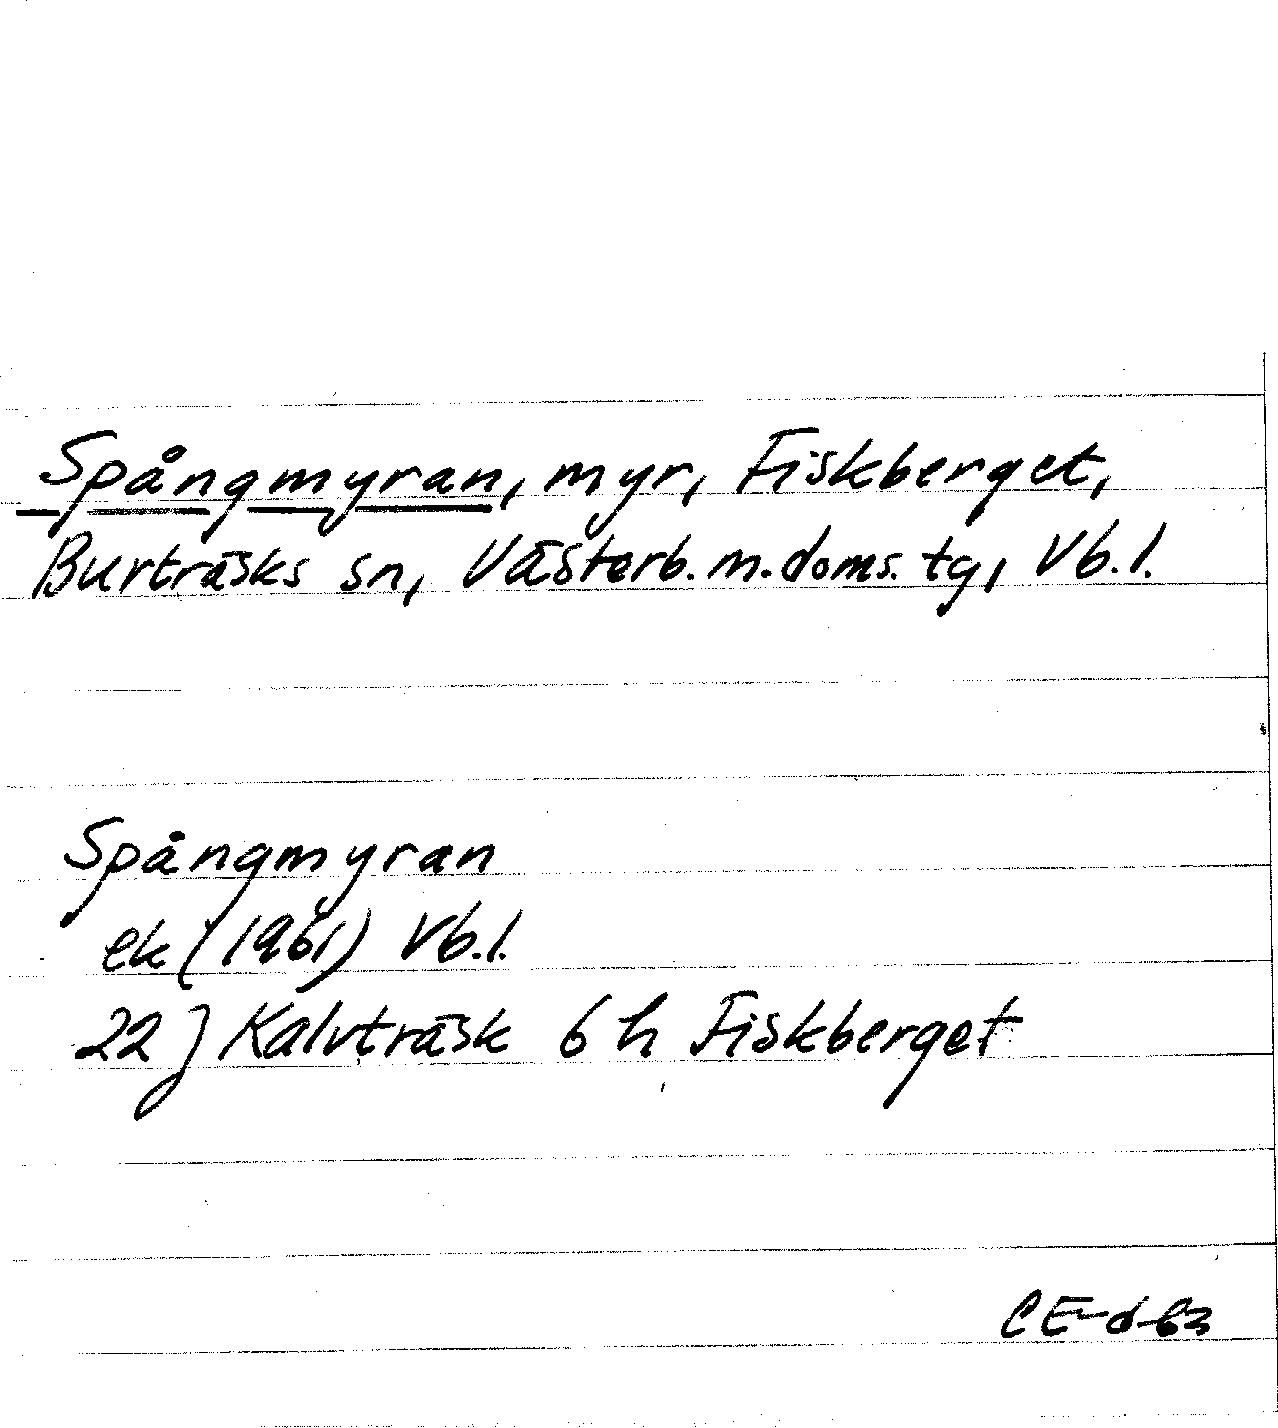 Spångmyran, myr, Fiskberget,
Burträsks sn, Västerb. m. doms. tg, Vb. l.
Spångmyran
ek (1961) Vb. l.
22 J Kalvträsk 6 h Fiskberget
CE-d-63